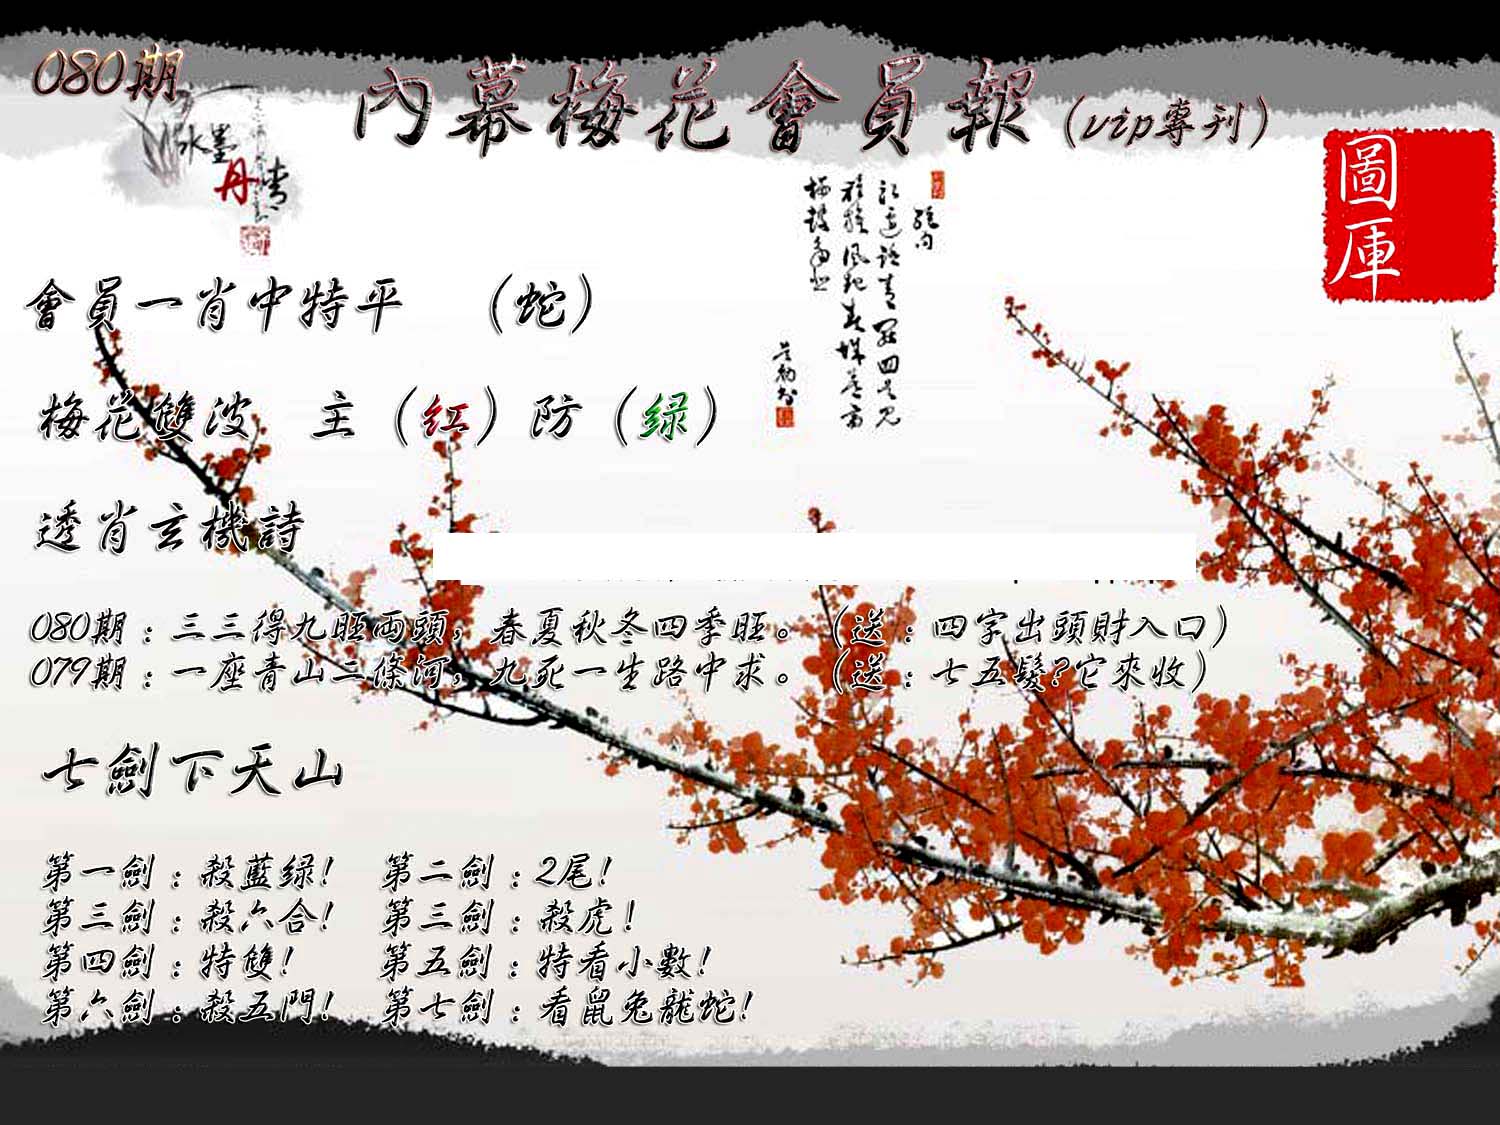 080期
內幕梅花會員報(vip專刊)
水墨
丹青
圖庫
會員一肖中特平 (蛇)
梅花雙波 主(红)防(绿)
透肖玄機詩
080期:三三得九旺両頭,春夏秋冬四季旺。(送:四字出頭財入口)
079期:一座青山二條河,九死一生路中求。(送:七五髮?它來收)
七劍下天山
第一劍:殺藍绿! 第二劍:2尾!
第三劍:殺六合! 第三劍:殺虎!
第四劍:特雙! 第五劍:特看小數!
第六劍:殺五門! 第七劍:看鼠兔龍蛇!